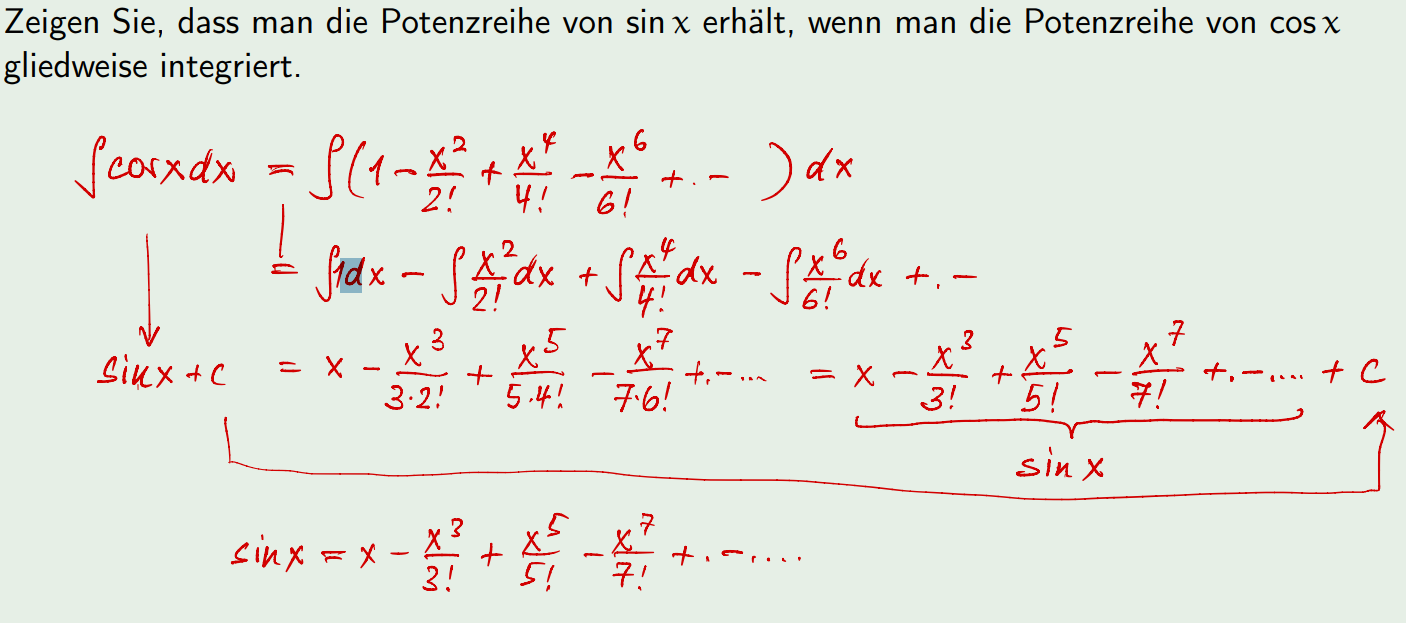 Zeigen Sie, dass man die Potenzreihe von sin x erhält, wenn man die Potenzreihe von cos x
gliedweise integriert.
∫cosxdx = ∫(1 - x²/2! + x⁴/4! - x⁶/6! + . - ) dx
= ∫1dx - ∫x²/2! dx + ∫x⁴/4! dx - ∫x⁶/6! dx + . -
sinx + C = x - x³/(3·2!) + x⁵/(5·4!) - x⁷/(7·6!) + . - ... = x - x³/3! + x⁵/5! - x⁷/7! + . - .... + C
sin x
sinx = x - x³/3! + x⁵/5! - x⁷/7! + . - ....